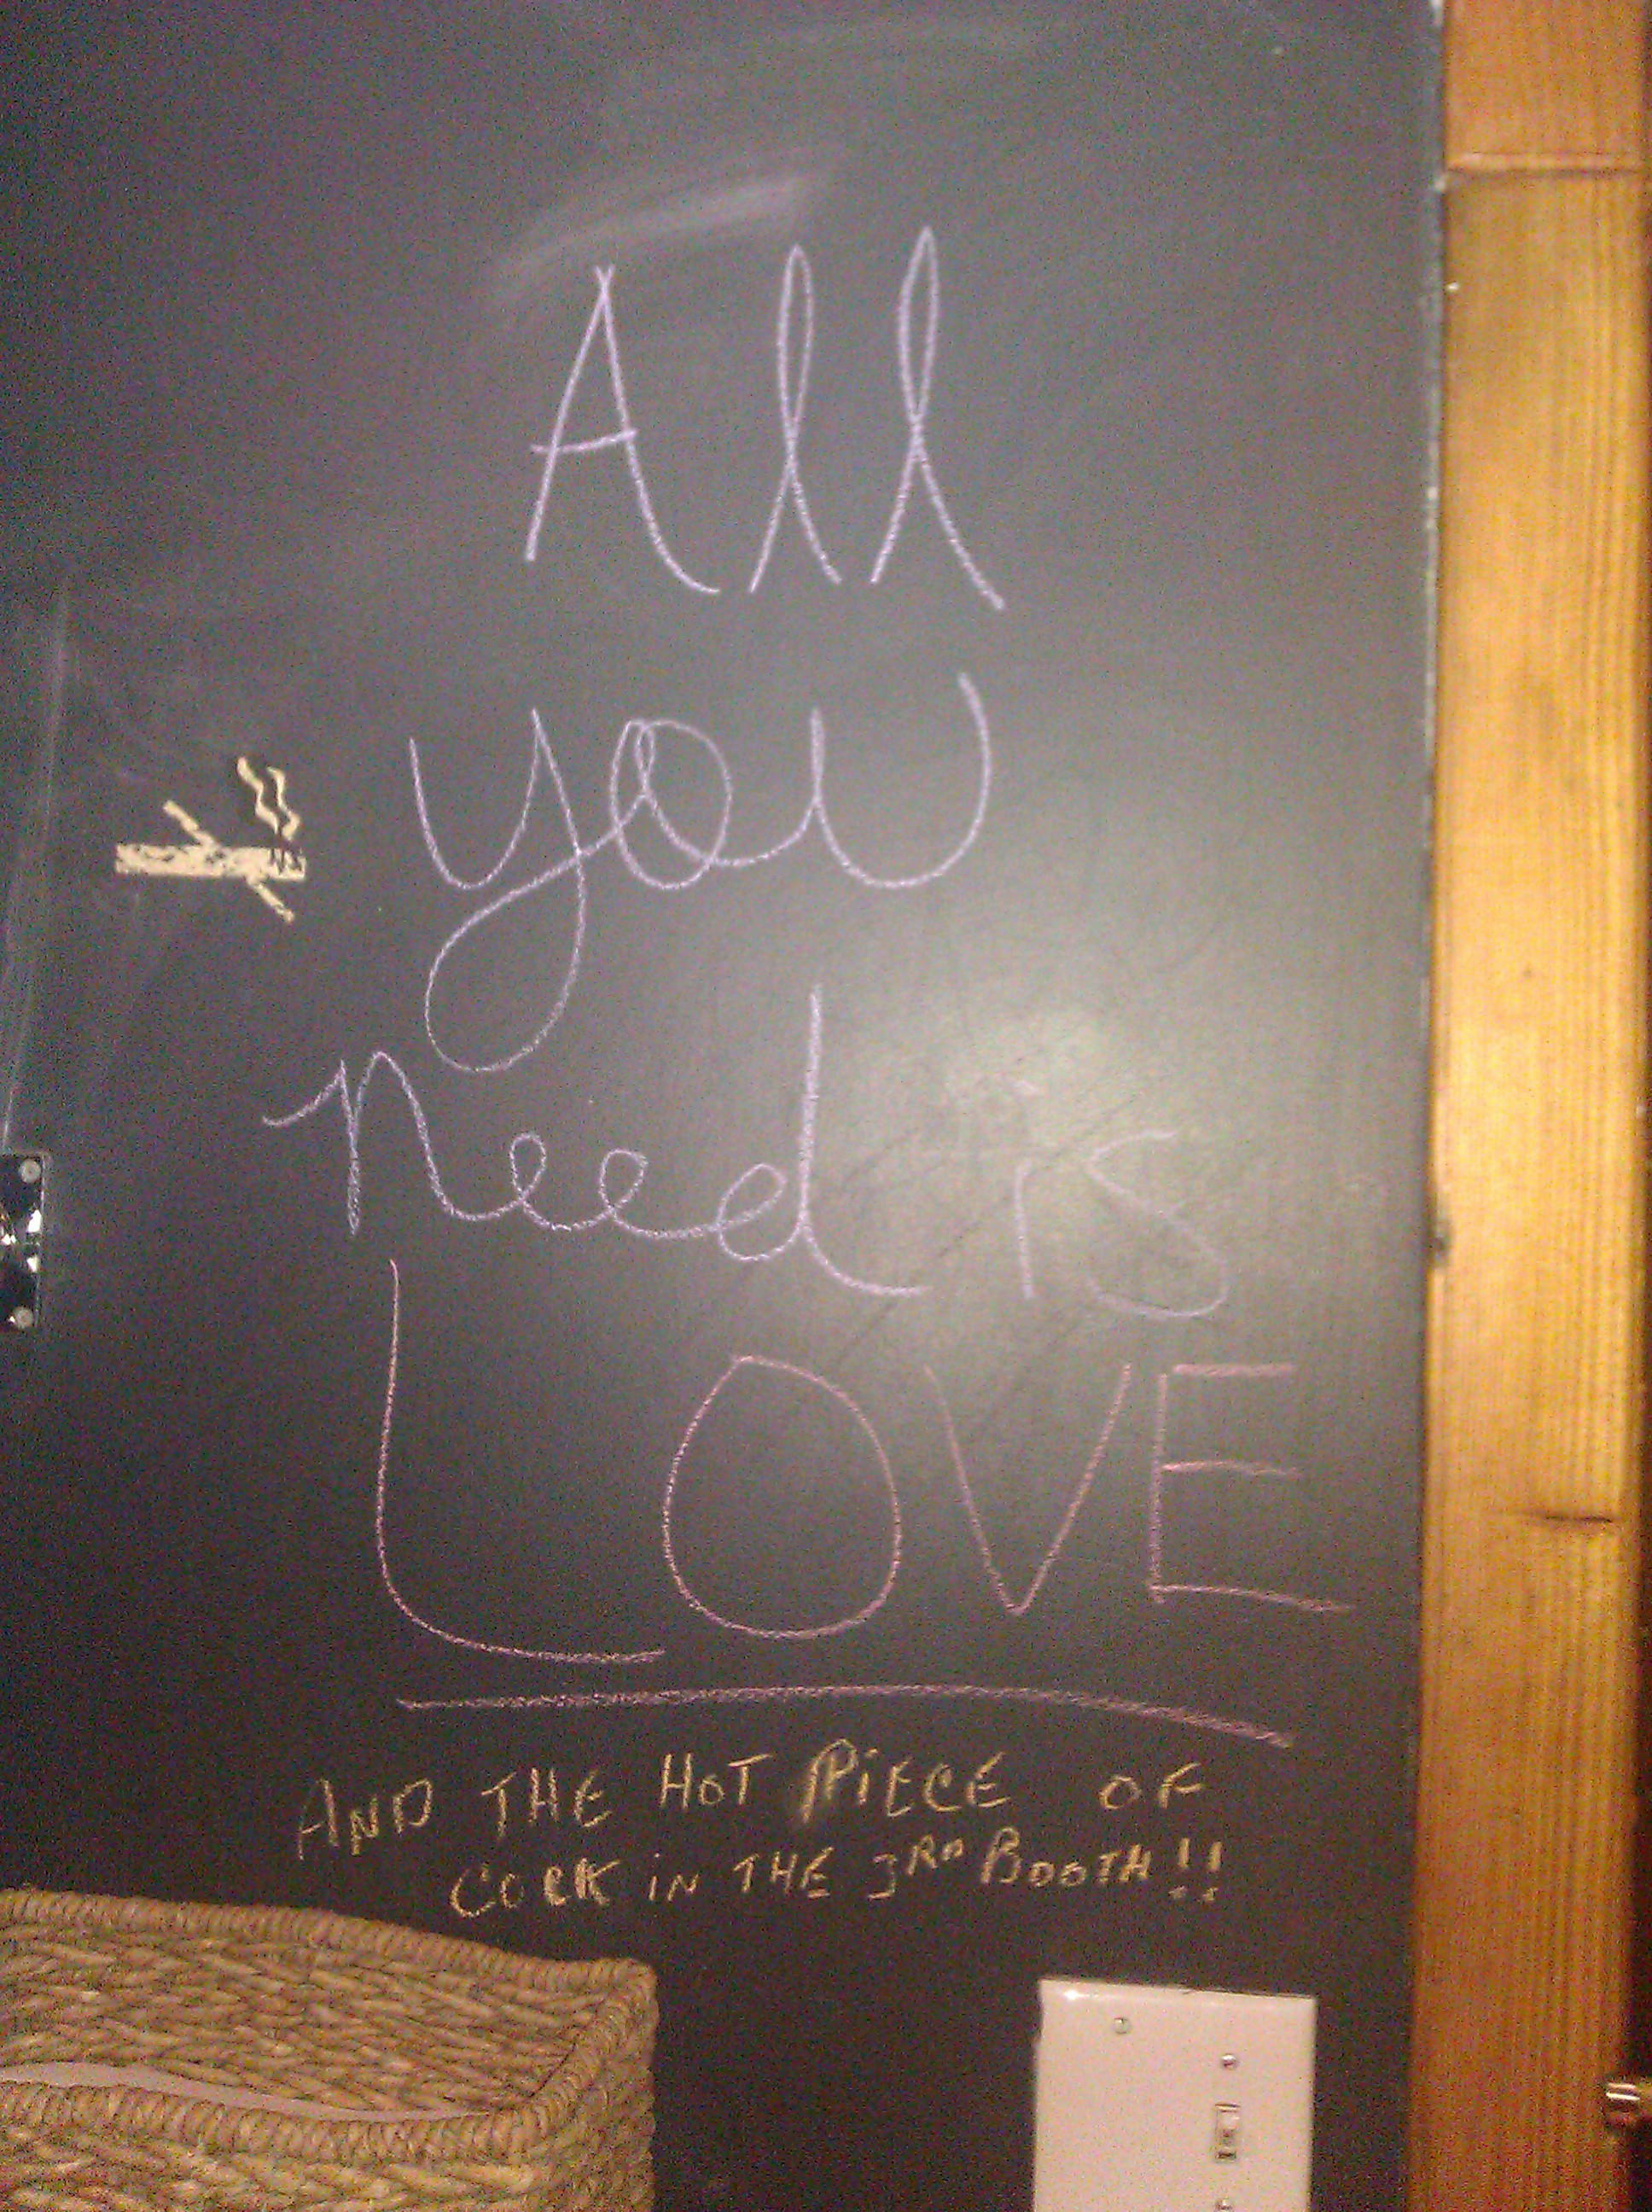 All
you
need is
LOVE
AND THE HOT PIECE OF
COCK IN THE 3RD BOOTH!!